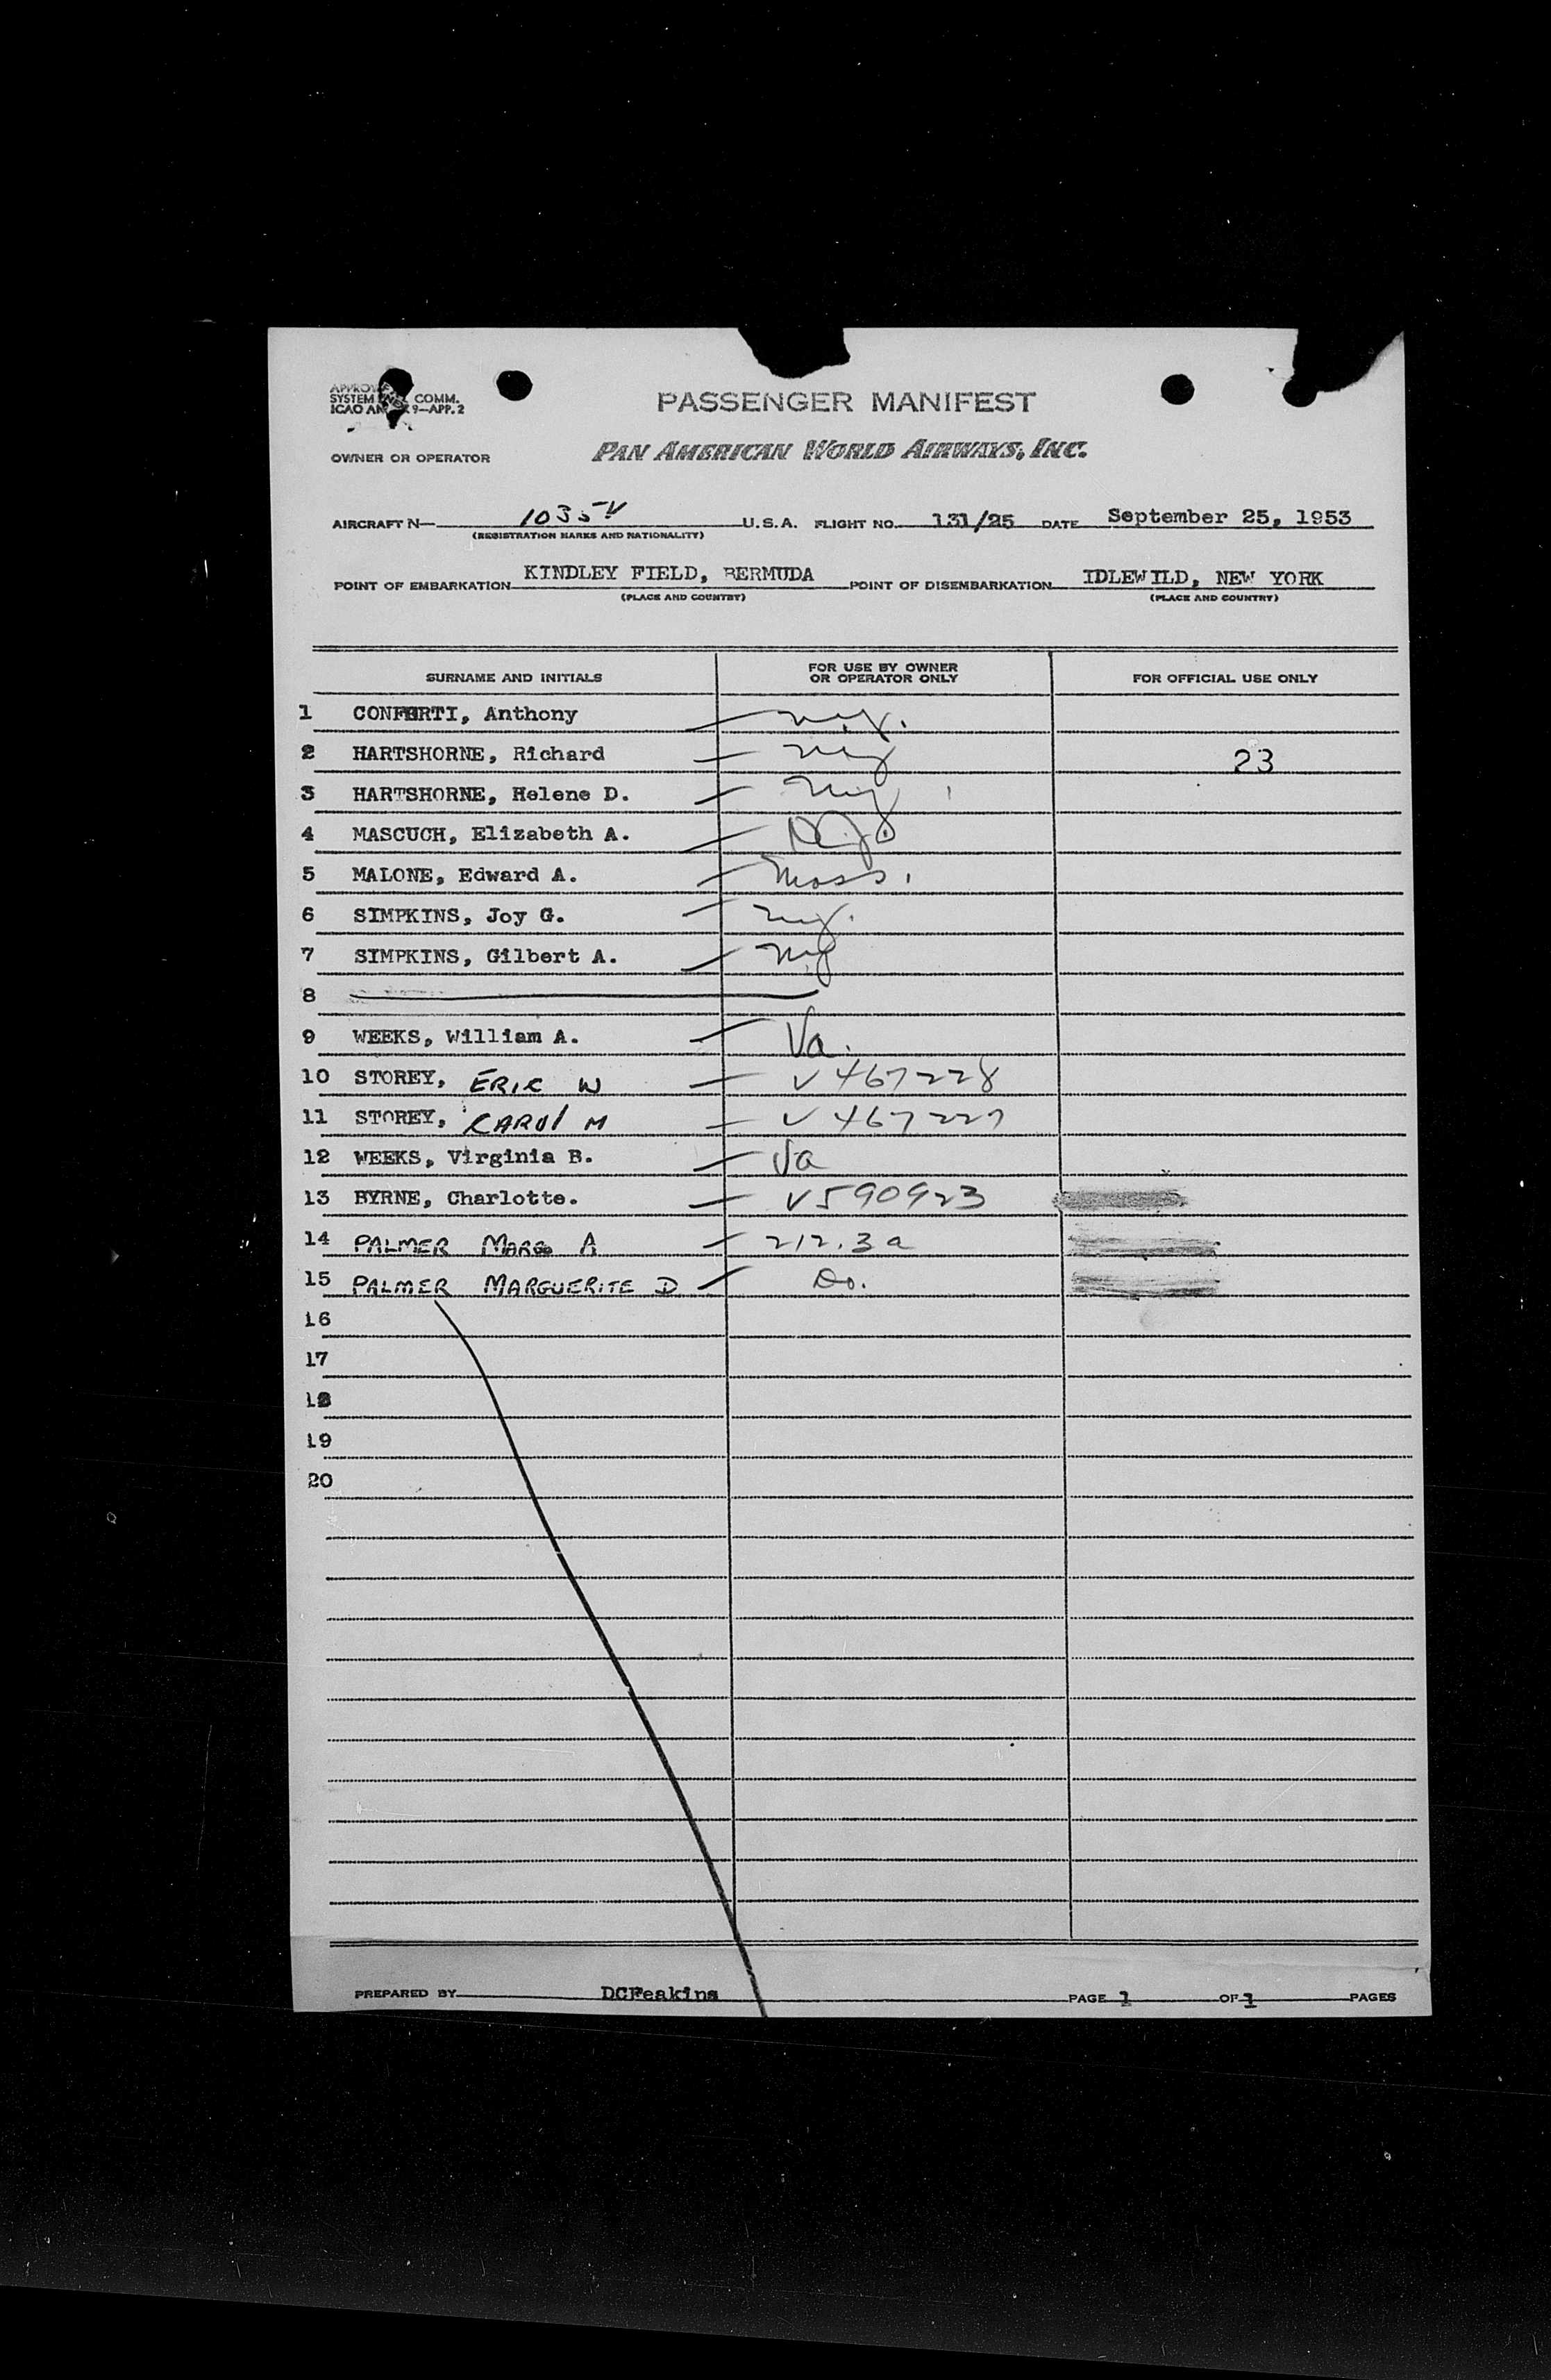 PASSENGER MANIFEST
SYSTEM COMM.
ICAO 9—APP. 2
OWNER OR OPERATOR PAN AMERICAN WORLD AIRWAYS, INC.
AIRCRAFT N— 1035V U.S.A. FLIGHT NO. 131/25 DATE September 25, 1953
(REGISTRATION MARKS AND NATIONALITY)
POINT OF EMBARKATION KINDLEY FIELD, BERMUDA POINT OF DISEMBARKATION IDLEWILD, NEW YORK
(PLACE AND COUNTRY) (PLACE AND COUNTRY)
SURNAME AND INITIALS FOR USE BY OWNER OR OPERATOR ONLY FOR OFFICIAL USE ONLY
1 CONFORTI, Anthony
2 HARTSHORNE, Richard 23
3 HARTSHORNE, Helene D.
4 MASCUCH, Elizabeth A.
5 MALONE, Edward A. Mass.
6 SIMPKINS, Joy G.
7 SIMPKINS, Gilbert A.
8
9 WEEKS, William A. Va.
10 STOREY, ERIC W V467228
11 STOREY, CAROL M V467227
12 WEEKS, Virginia B. Va
13 BYRNE, Charlotte. V590923
14 PALMER MARGO A 212.3a
15 PALMER MARGUERITE D Do.
16
17
18
19
20
PREPARED BY DCFeakins PAGE 1 OF 1 PAGES